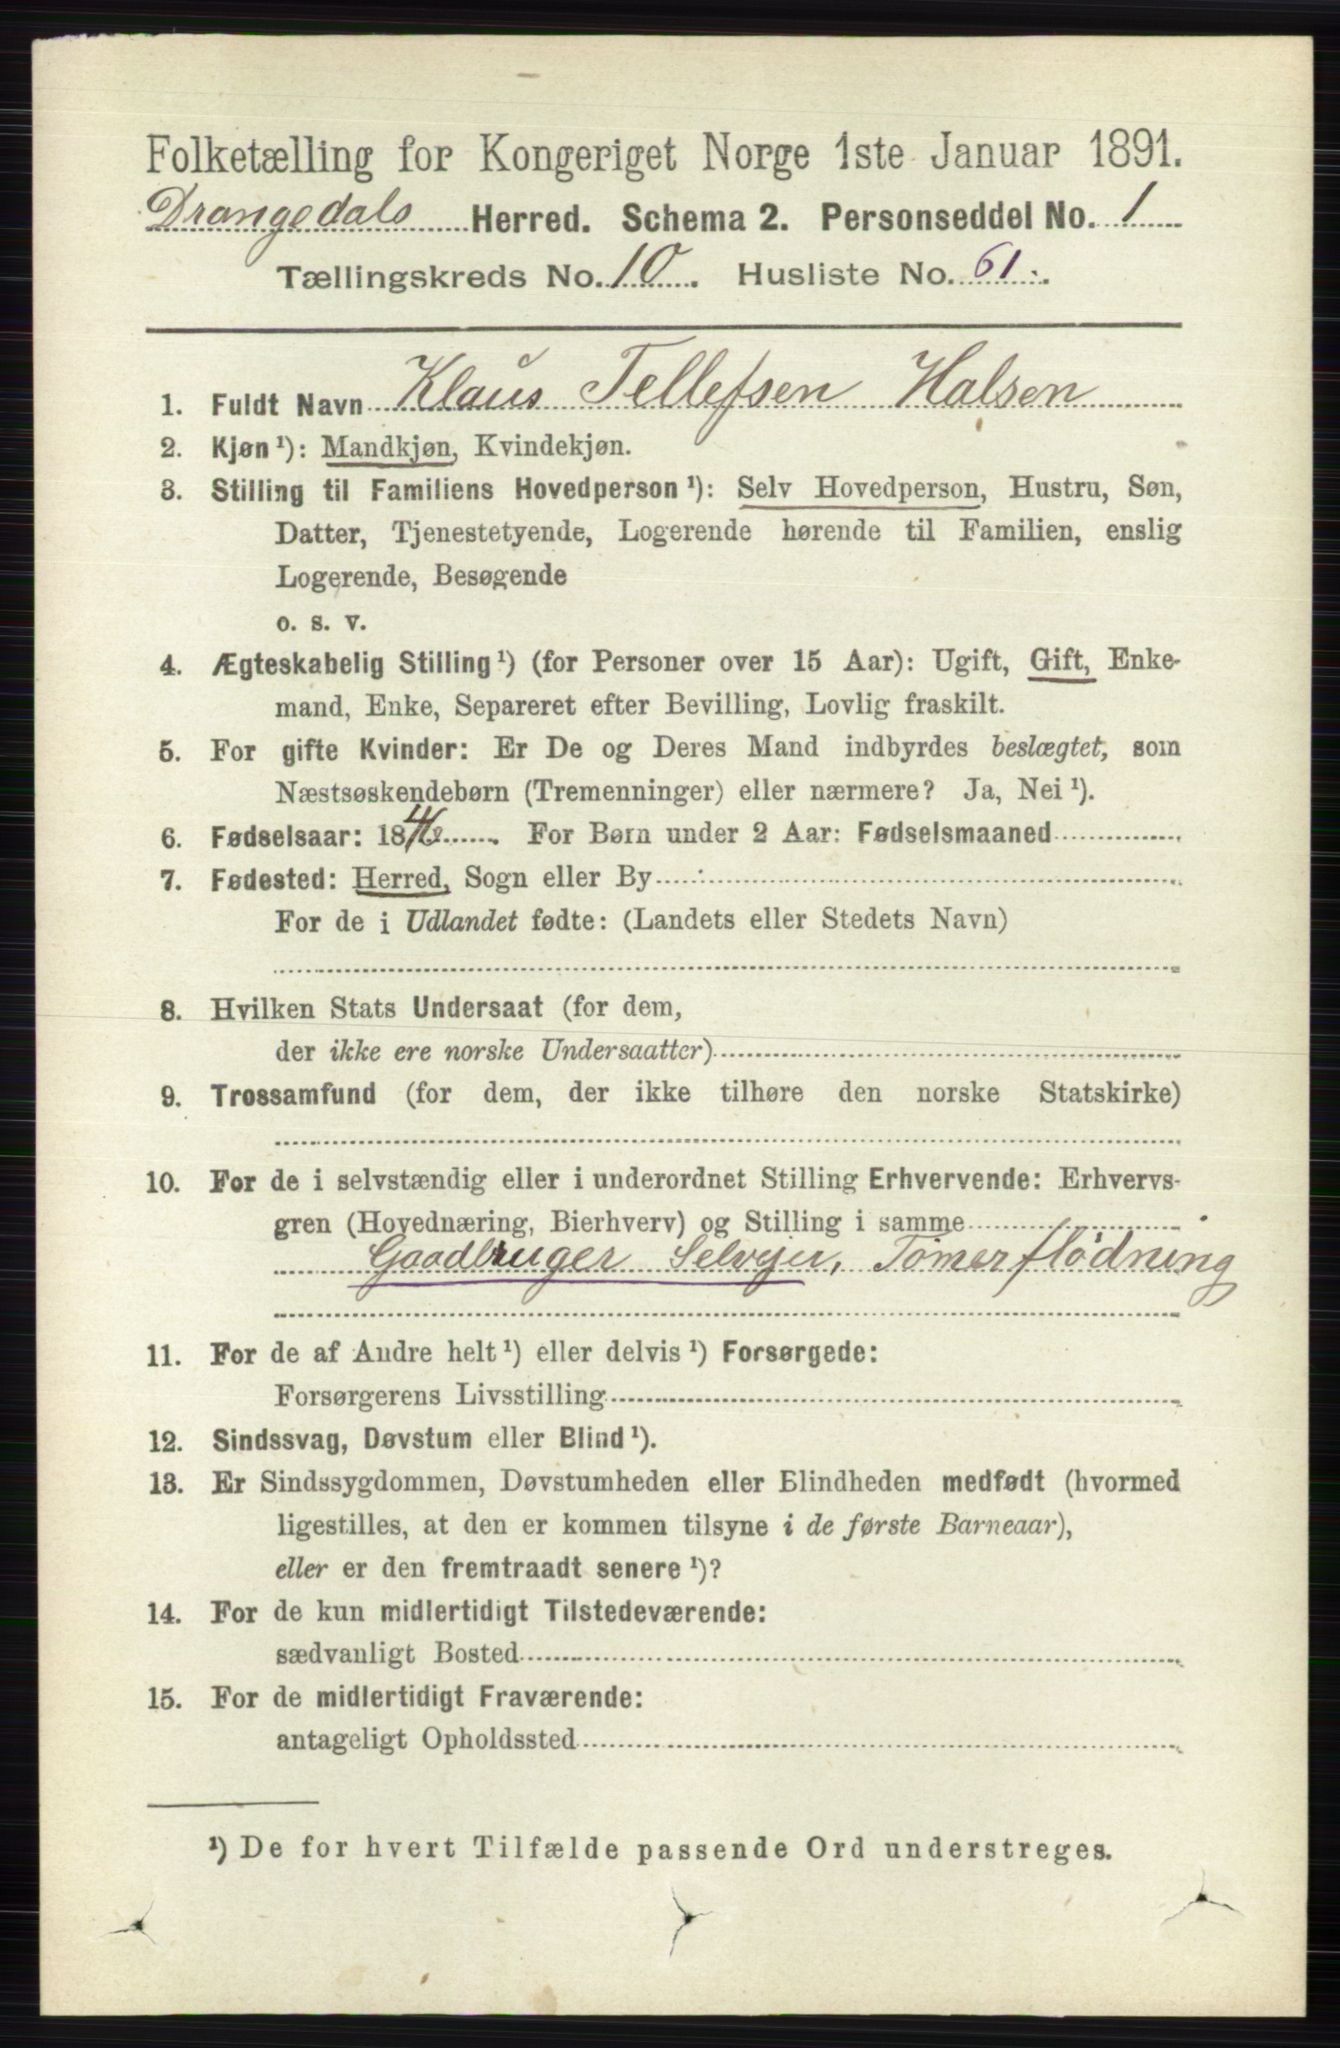 Folketælling for Kongeriget Norge 1ste Januar 1891.
Drangedals Herred. Schema 2. Personseddel No. 1
Tællingskreds No. 10. Husliste No. 61.
1. Fuldt Navn Klaus Tellefsen Halsen
2. Kjøn¹): Mandkjøn, Kvindekjøn.
3. Stilling til Familiens Hovedperson¹): Selv Hovedperson, Hustru, Søn,
Datter, Tjenestetyende, Logerende hørende til Familien, enslig
Logerende, Besøgende
o. s. v.
4. Ægteskabelig Stilling¹) (for Personer over 15 Aar): Ugift, Gift, Enke-
mand, Enke, Separeret efter Bevilling, Lovlig fraskilt.
5. For gifte Kvinder: Er De og Deres Mand indbyrdes beslægtet, som
Næstsøskendebørn (Tremenninger) eller nærmere? Ja, Nei¹).
6. Fødselsaar: 18 . For Børn under 2 Aar: Fødselsmaaned
7. Fødested: Herred, Sogn eller By
For de i Udlandet fødte: (Landets eller Stedets Navn)
8. Hvilken Stats Undersaat (for dem,
der ikke ere norske Undersaatter)
9. Trossamfund (for dem, der ikke tilhøre den norske Statskirke)
10. For de i selvstændig eller i underordnet Stilling Erhvervende: Erhvervs-
gren (Hovednæring, Bierhverv) og Stilling i samme
Gaadbruger Selvejer, Tømerflødning
11. For de af Andre helt¹) eller delvis¹) Forsørgede:
Forsørgerens Livsstilling
12. Sindssvag, Døvstum eller Blind¹).
13. Er Sindssygdommen, Døvstumheden eller Blindheden medfødt (hvormed
ligestilles, at den er kommen tilsyne i de første Barneaar),
eller er den fremtraadt senere¹)?
14. For de kun midlertidigt Tilstedeværende:
sædvanligt Bosted
15. For de midlertidigt Fraværende:
antageligt Opholdssted
¹) De for hvert Tilfælde passende Ord understreges.